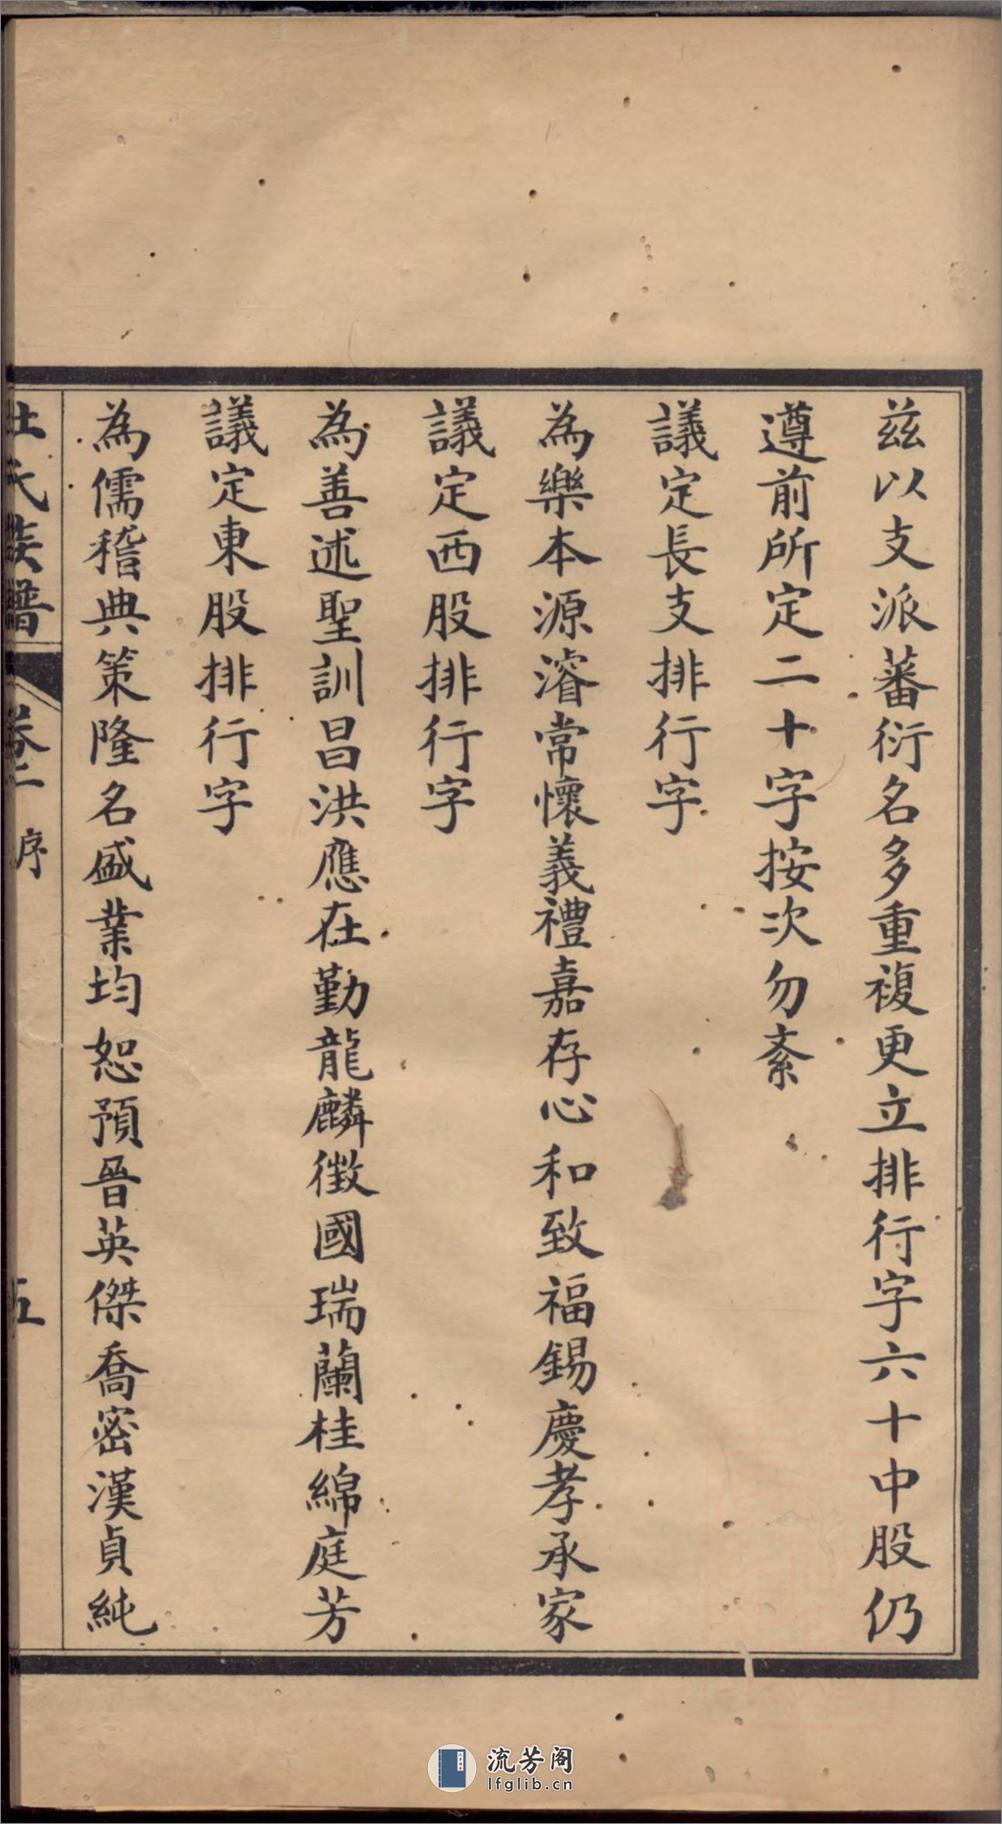 茲以支派蕃衍名多重複更立排行字六十中股仍
遵前所定二十字按次勿紊
議定長支排行字
為樂本源濬常懷義禮嘉存心和致福錫慶孝承家
議定西股排行字
為善述聖訓昌洪應在勤龍麟徵國瑞蘭桂綿庭芳
議定東股排行字
為儒稽典策隆名盛業均恕預晉英傑喬密漢貞純
杜氏族譜
卷二 序
五
流芳阁
lfglib.cn